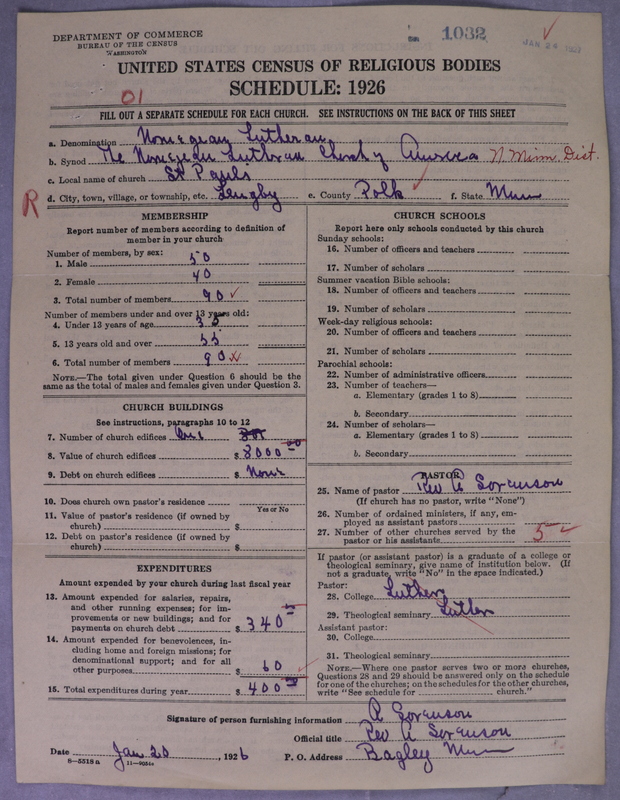 DEPARTMENT OF COMMERCE
BUREAU OF THE CENSUS
WASHINGTON
1032
JAN 24
UNITED STATES CENSUS OF RELIGIOUS BODIES
SCHEDULE: 1926
01
FILL OUT A SEPARATE SCHEDULE FOR EACH CHURCH. SEE INSTRUCTIONS ON THE BACK OF THIS SHEET
a. Denomination Norwegian Lutheran
b. Synod The Norwegian Lutheran Church of America N. Minn. Dist.
c. Local name of church St Pauls
R d. City, town, village, or township, etc. Lengby e. County Polk f. State Minn
MEMBERSHIP
Report number of members according to definition of
member in your church
Number of members, by sex:
1. Male 50
2. Female 40
3. Total number of members 90
Number of members under and over 13 years old:
4. Under 13 years of age 35
5. 13 years old and over 55
6. Total number of members 90
NOTE.—The total given under Question 6 should be the
same as the total of males and females given under Question 3.
CHURCH BUILDINGS
See instructions, paragraphs 10 to 12
7. Number of church edifices One
8. Value of church edifices $ 8000 00
9. Debt on church edifices $ None
10. Does church own pastor's residence
Yes or No
11. Value of pastor's residence (if owned by
church) $
12. Debt on pastor's residence (if owned by
church) $
EXPENDITURES
Amount expended by your church during last fiscal year
13. Amount expended for salaries, repairs,
and other running expenses; for im-
provements or new buildings; and for
payments on church debt $ 340
14. Amount expended for benevolences, in-
cluding home and foreign missions; for
denominational support; and for all
other purposes $ 60
15. Total expenditures during year $ 400
CHURCH SCHOOLS
Report here only schools conducted by this church
Sunday schools:
16. Number of officers and teachers
17. Number of scholars
Summer vacation Bible schools:
18. Number of officers and teachers
19. Number of scholars
Week-day religious schools:
20. Number of officers and teachers
21. Number of scholars
Parochial schools:
22. Number of administrative officers
23. Number of teachers—
a. Elementary (grades 1 to 8)
b. Secondary
24. Number of scholars—
a. Elementary (grades 1 to 8)
b. Secondary
PASTOR
25. Name of pastor Rev A Sorenson
(If church has no pastor, write "None")
26. Number of ordained ministers, if any, em-
ployed as assistant pastors
27. Number of other churches served by the
pastor or his assistants 5
If pastor (or assistant pastor) is a graduate of a college or
theological seminary, give name of institution below. (If
not a graduate, write "No" in the space indicated.)
Pastor:
28. College Luther
29. Theological seminary Luther
Assistant pastor:
30. College
31. Theological seminary
NOTE.—Where one pastor serves two or more churches,
Questions 28 and 29 should be answered only on the schedule
for one of the churches; on the schedules for the other churches,
write "See schedule for church."
Signature of person furnishing information A Sorenson
Official title Rev A Sorenson
Date Jan 20, 1926 P. O. Address Bagley Minn
8—5518 a 11—9054